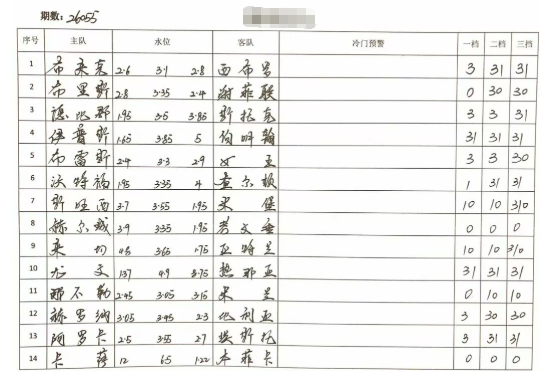 期数: 26055
序号 主队 水位 客队 冷门预警 一档 二档 三档
1 布莱克 2.6 3.1 2.8 西布罗 3 31 31
2 布里斯 2.8 3.35 2.4 谢菲联 0 30 30
3 德比郡 1.95 3.5 3.85 斯托克 3 3 31
4 伊普斯 1.65 3.85 5 伯明翰 31 31 31
5 布雷斯 2.4 3.3 2.9 女王 3 3 30
6 沃特福 1.95 3.35 4 查尔顿 1 31 31
7 斯旺西 3.7 3.55 1.95 米堡 10 10 310
8 赫尔城 3.9 3.35 1.95 考文垂 0 0 0
9 莱切 4.8 3.65 1.75 亚特兰 10 10 310
10 尤文 1.37 4.9 3.75 热那亚 31 31 31
11 那不勒 2.45 3.05 3.15 米兰 0 10 10
12 赫罗纳 3.05 3.45 2.3 比利亚 3 30 30
13 阿罗卡 2.5 3.55 2.7 埃斯托 3 31 31
14 卡萨 12 6.5 1.22 本菲卡 0 0 0